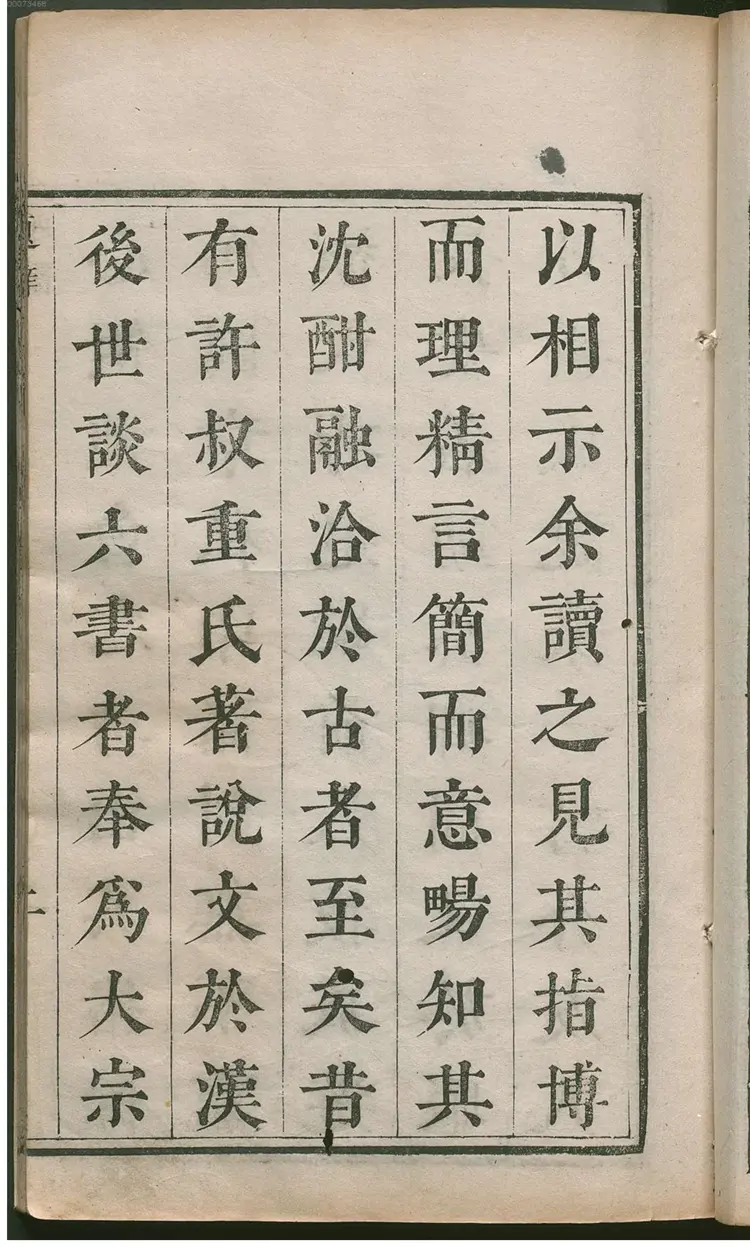 以相示余讀之見其指博
而理精言簡而意暢知其
沈酣融洽於古者至矣昔
有許叔重氏著說文於漢
後世談六書者奉爲大宗